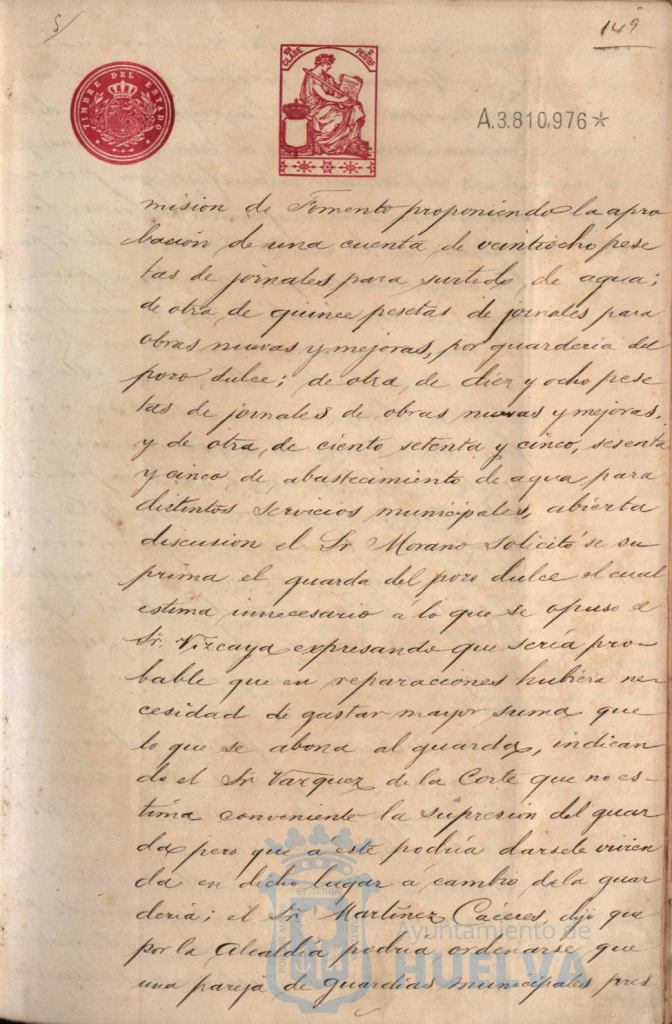 5/
149
TIMBRE DEL ESTADO
CLASE
2 PESETAS
A.3.810,976*
mision de Fomento proponiendo la apro
bación de una cuenta de veintiocho pese
tas de jornales para surtido de agua;
de otra de quince pesetas de jornales para
obras nuevas y mejoras, por guarderia del
pozo dulce; de otra de diez y ocho pese
tas de jornales de obras nuevas y mejoras,
y de otra de ciento setenta y cinco, sesenta
y cinco de abastecimiento de agua para
distintos servicios municipales, abierta
discusion el Sr Morano solicitó se su
prima el guarda del pozo dulce el cual
estima innecesario á lo que se opuso el
Sr. Vizcaya expresando que sería pro-
bable que en reparaciones hubiera ne
cesidad de gastar mayor suma que
lo que se abona al guarda, indican
do el Sr Vazquez de la Corte que no es-
tima conveniente la supresion del guar
da pero que á este podría darsele vivien
da en dicho lugar á cambio de la guar
dería; el Sr Martinez Cáceres dijo que
por la Alcaldía podria ordenarse que
una pareja de guardias municipales pres
Ayuntamiento de
HUELVA